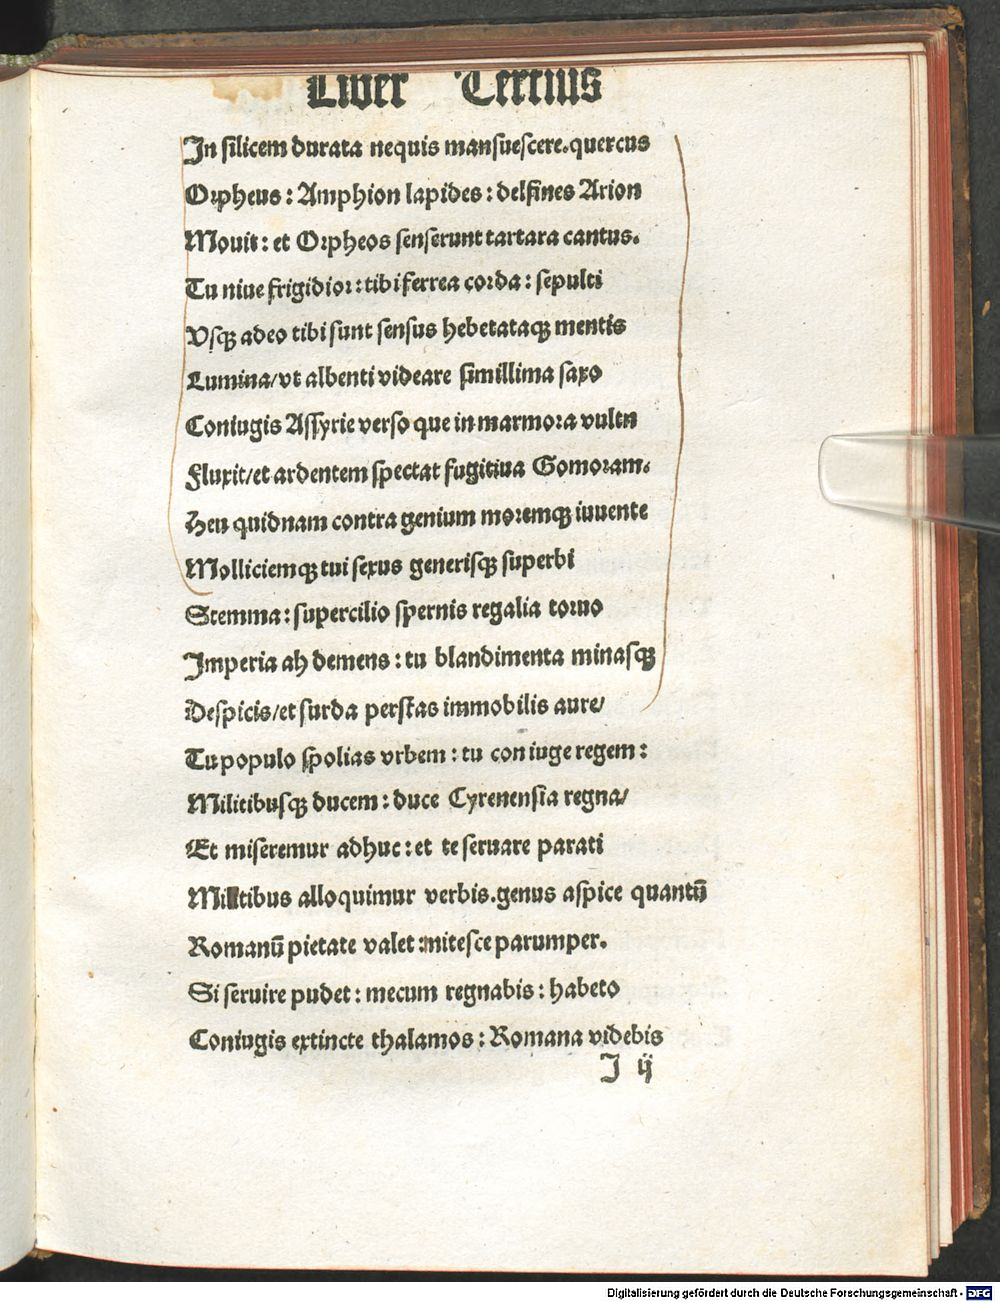 Liber Tertius
In silicem durata nequis mansuescere.quercus
Orpheus: Amphion lapides: delfines Arion
Mouit: et Orpheos senserunt tartara cantus.
Tu niue frigidior: tibi ferrea corda: sepulti
Vsqꝫ adeo tibi sunt sensus hebetataqꝫ mentis
Lumina/vt albenti videare simillima saxo
Coniugis Assyrie verso que in marmora vultu
Fluxit/et ardentem spectat fugitiua Gomoram.
Heu quidnam contra genium moremqꝫ iuuente
Molliciemqꝫ tui sexus generisqꝫ superbi
Stemma: supercilio spernis regalia toruo
Imperia ah demens: tu blandimenta minasqꝫ
Despicis/et surda perstas immobilis aure/
Tu populo spolias vrbem: tu coniuge regem:
Militibusqꝫ ducem: duce Cyrenensia regna/
Et miseremur adhuc: et te seruare parati
Mitibus alloquimur verbis.genus aspice quantū
Romanū pietate valet: mitesce parumper.
Si seruire pudet: mecum regnabis: habeto
Coniugis extincte thalamos: Romana videbis
I ij
Digitalisierung gefördert durch die Deutsche Forschungsgemeinschaft - DFG